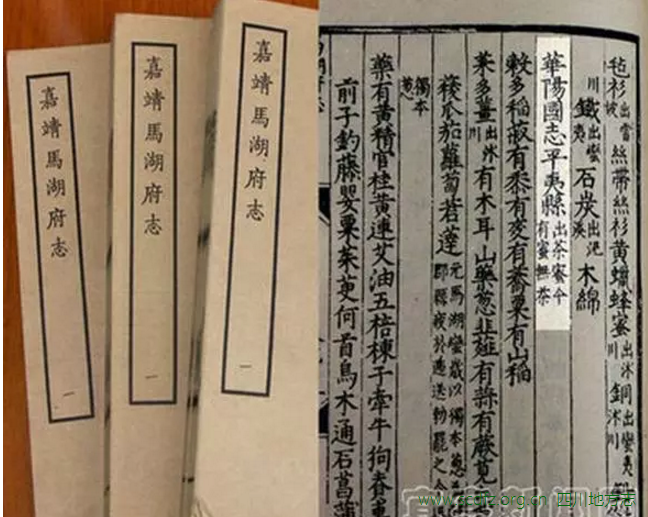 嘉靖馬湖府志
一
嘉靖馬湖府志
一
嘉靖馬湖府志
一
毡衫出當坡絲帶絲衫黃蠟蜂蜜出沐川銅出蠻夷
川鐵出蠻夷石炭出泥溪木綿
華陽國志平夷縣出茶蜜今有蜜無茶
穀多稻菽有黍有麥有蕎粟有山稻
菜多薑出沐川有木耳山藥葱韭薤有蒜有蕨莧
瓜茄蘿蔔若薘元馬湖蠻歲以獨本葱郡縣疲於遞送勅罷之今
獨本葱
藥有黃精官桂黃連艾油五棓楝子牽牛狗脊車
前子鈎藤罌粟茱萸何首烏木通石菖蒲
四川地方志